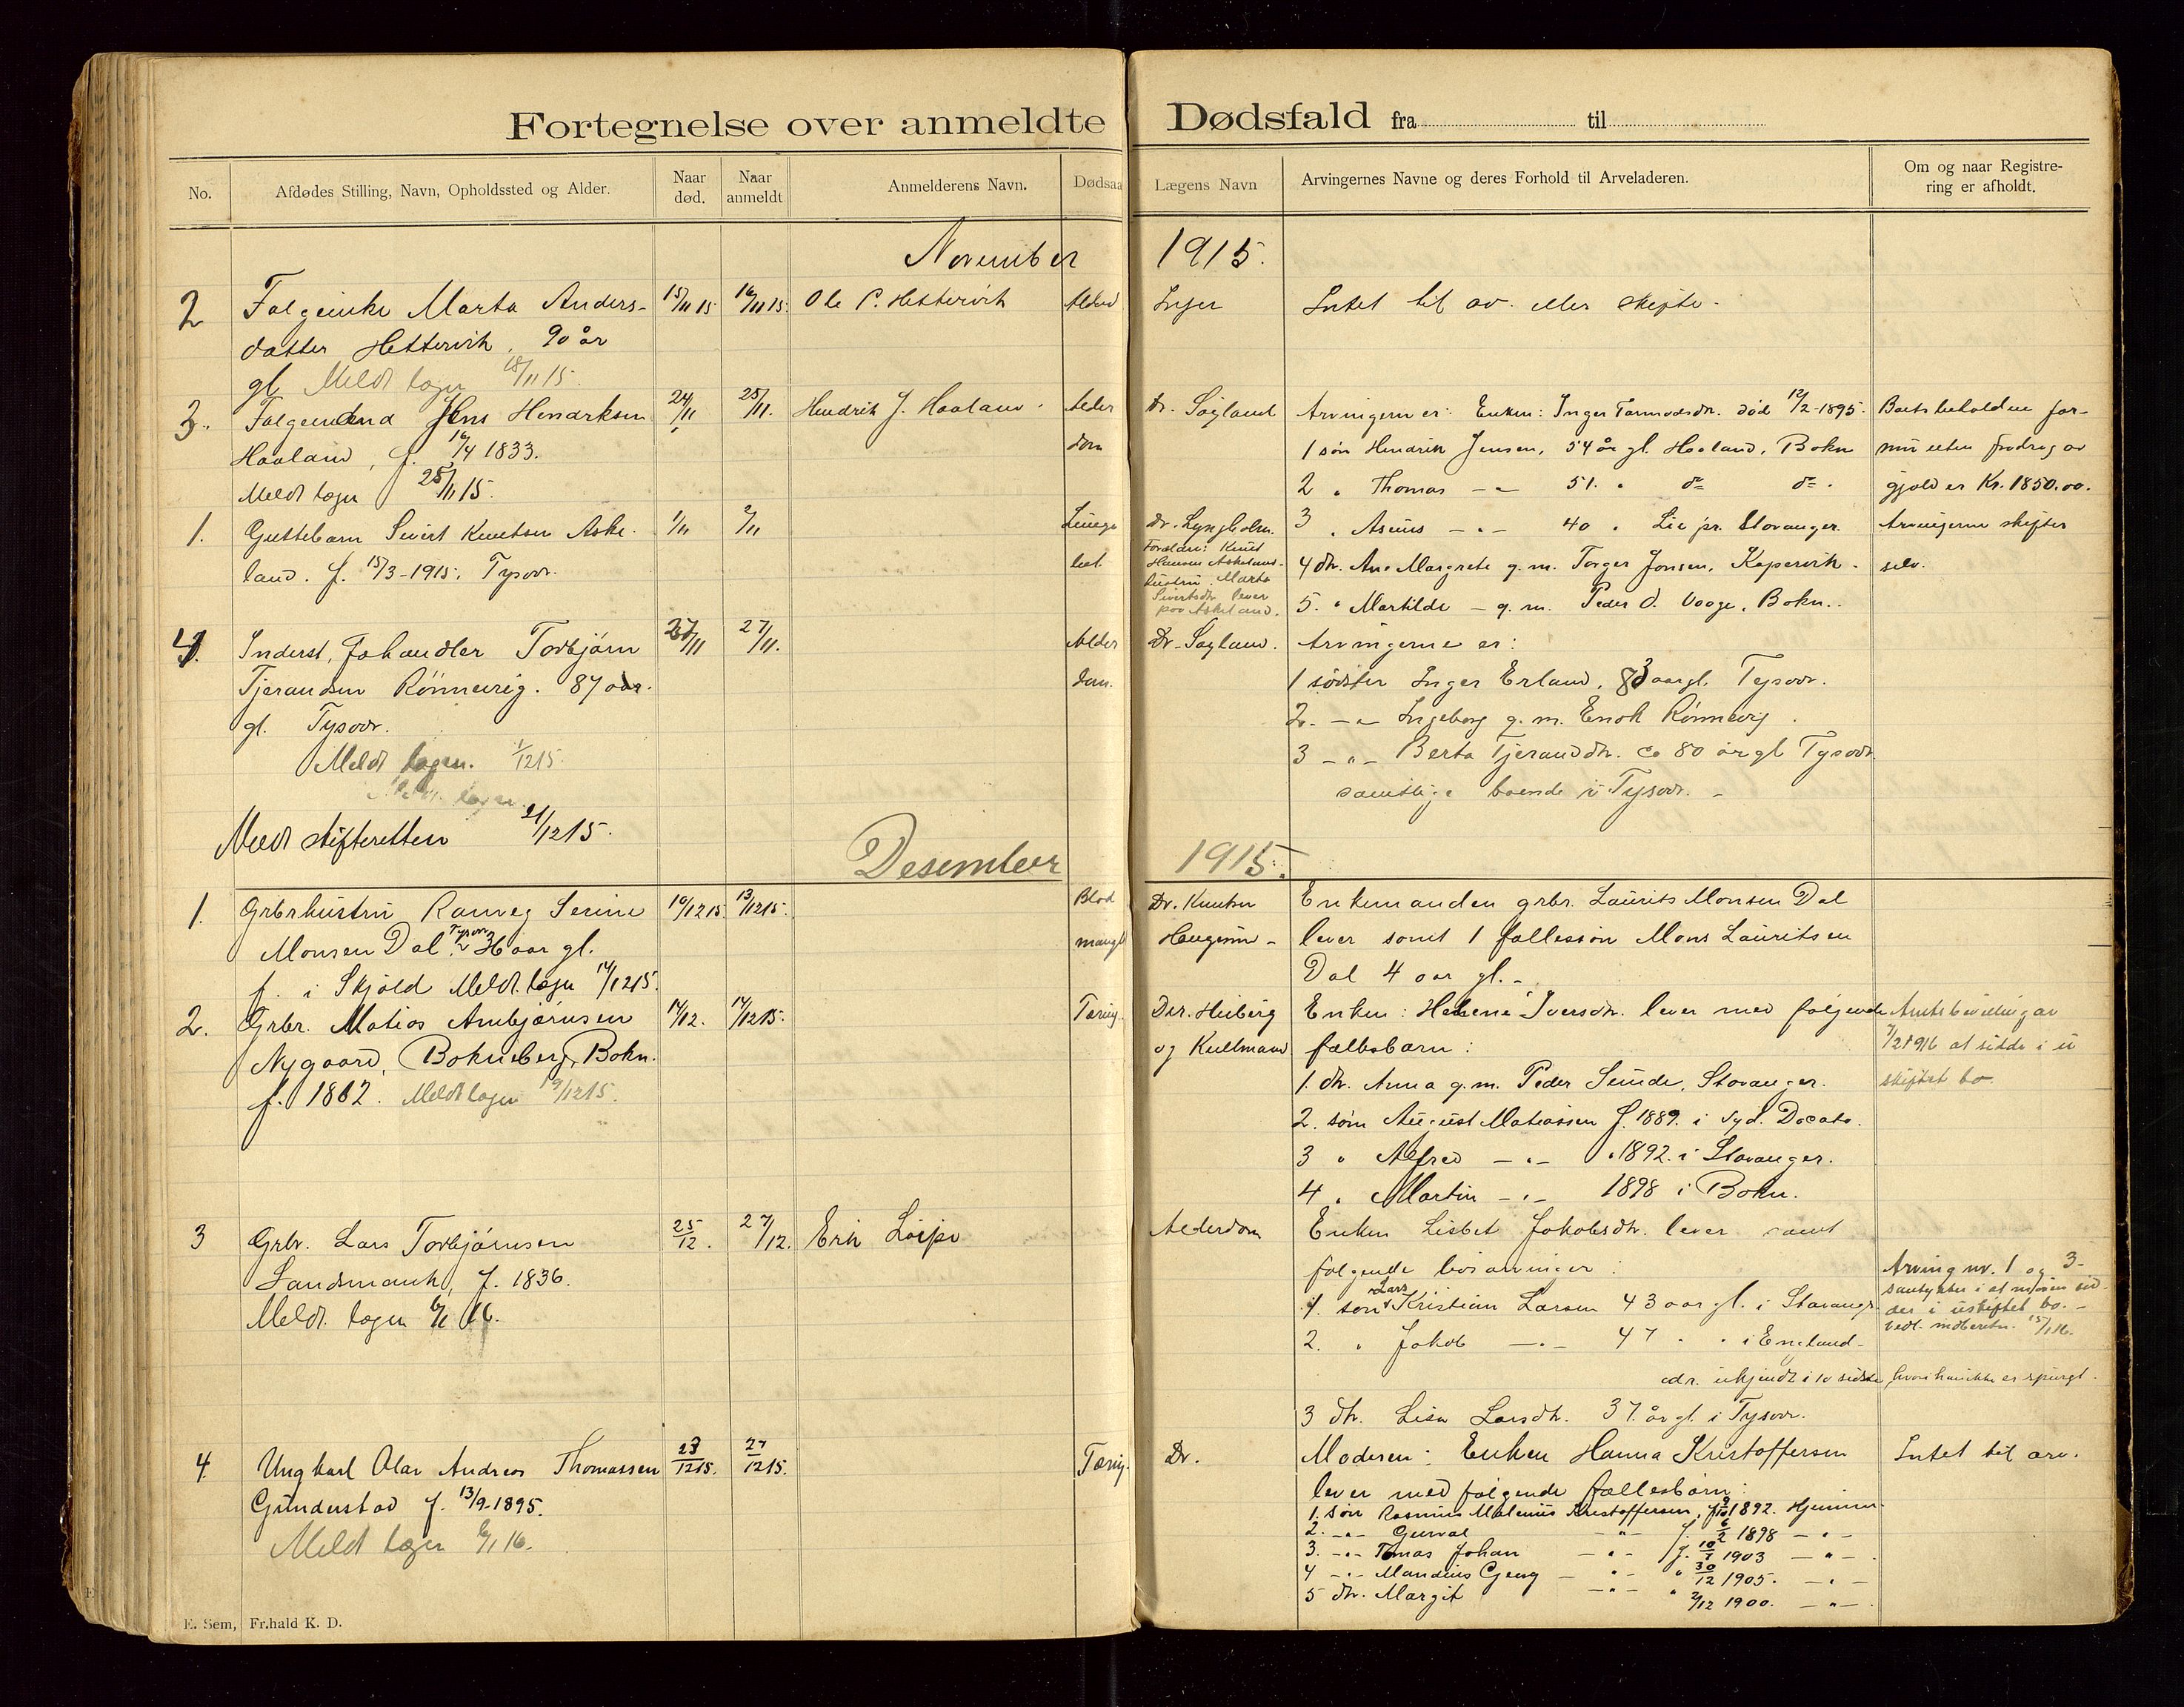 Fortegnelse over anmeldte Dødsfald fra til
No.
Afdødes Stilling, Navn, Opholdssted og Alder.
Naar død.
Naar anmeldt
Anmelderens Navn.
Dødsaa
Lægens Navn
Arvingernes Navne og deres Forhold til Arveladeren.
Om og naar Registre-
ring er afholdt.
November 1915.
2 Marta Anders- 15/11 15 16/11 15. Ole Hettervik Inger Intet til arv eller skifte.
datter Hettervik. 90 år
gl. Meldt 18/11 15.
3. Jens Hendriksen 24/11 25/11. Hendrik J. Haaland. Alder Dr. Søyland
Haaland, f. 16/4 1833. dom
Meldt 25/11 15.
Arvingerne er: Enken: Inger død 12/2-1895.
1 søn Hendrik Jensen, 54 år gl. Haaland, Bokn
2 " Thomas - " - 51. " do do.
3 " Asmus - " - 40 " Lie pr. Stavanger.
4 dtr. Ane Margrete g. m. Torger Jonsen, Kopervik.
5. " Martilde - g. m. Peder O. Vaage, Bokn.
Boets beholdne for-
mue uten fradrag av
gjæld er Kr. 1850.00.
Arvingerne skifter
selv.
1. Guttebarn Sivert Knutsen Aske- 1/11 2/11 Lunge Dr. Lyngholm.
land. f. 15/3-1915. Tysvær. bet.
Forældre: Knut
Hansen Askeland
hustru Marta
Sivertsdtr. lever
paa Askeland.
4. Inderst, Torbjørn 27/11 27/11. Alder Dr. Søyland. Arvingerne er:
Tjerandsen Rönnevig. 87 aar dom.
gl. Tysvær.
Meldt 1/12 15.
Meldt skifteretten 21/12 15.
1 søster Inger Erland, 83 aar gl. Tysvær.
2. - " - Ingeborg g. m. Enok Rönnevig.
3 - " - Berta Tjeranddtr. ca 80 år gl Tysvær
samtlige boende i Tysvær. -
Desember 1915.
1. Grbrhustru Serine 10/12 15 13/12 15. Blod Dr. Knutsen Enkemanden grbr. Laurits Monsen Dal
Monsen Dal, Tysvær aar gl. mangel lever samt 1 fællessøn Mons Lauritsen
f. i Skjold Meldt 14/12 15. Dal 4 aar gl. -
2. Grbr. Matias Arnbjørnsen 14/12. 17/12 15. Tæring. Heiberg Enken: Helene Iversdtr. lever med følgende
Nygaard, Bokneberg, Bokn. og Kullmann fællesbarn:
f. 1862. Meldt 19/12 15.
1. dtr. Anna g. m. Peder Sunde, Stavanger.
2. søn August Matiassen f. 1889. i Syd. Dacato.
3 " Alfred - " - " 1892. i Stavanger.
4 " Martin - " - 1898 i Bokn.
Amtsbevilling av
7/2 1916 at sidde i u
skiftet bo.
3 Grbr. Lars Torbjørnsen 25/12. 27/12. Erik Alderdom Enken Lisbet Jakobsdtr. lever samt
Landsmark, f. 1836. følgende
Meldt 6/1 16.
1. søn Lars Kristian Larsen 43 aar gl. i Stavanger
2. " Jakob - " - 47 " " i England
adr. ukjendt i 10 sidste
3 dtr. Lisa Larsdtr. 37 år gl. i Tysvær.
Arving nr. 1 og 3
samtykker i at moren sid-
der i uskiftet bo. -
15/1 16.
4. Ungkarl Olav Andreas Thomassen 23/12 15. 27/12 15. Tæring. Dr. Moderen: Enken Hanna Kristoffersen Intet til arv.
Gunderstad f. 13/9-1895. lever med følgende fællesbørn:
Meldt 6/1 16.
1. søn Rasmus Kristoffersen, 1892. Hjemme
2. - " - - " - f. 6/2 1898 - " -
3. - " - Tomas Johan - " - f. 10/7 1903 - " -
4 - " - Georg - " - " 30/12 1905. - " -
5 dtr. Margit - " - " 2/12 1900. - " -
E. Sem, Fr.hald K. D.